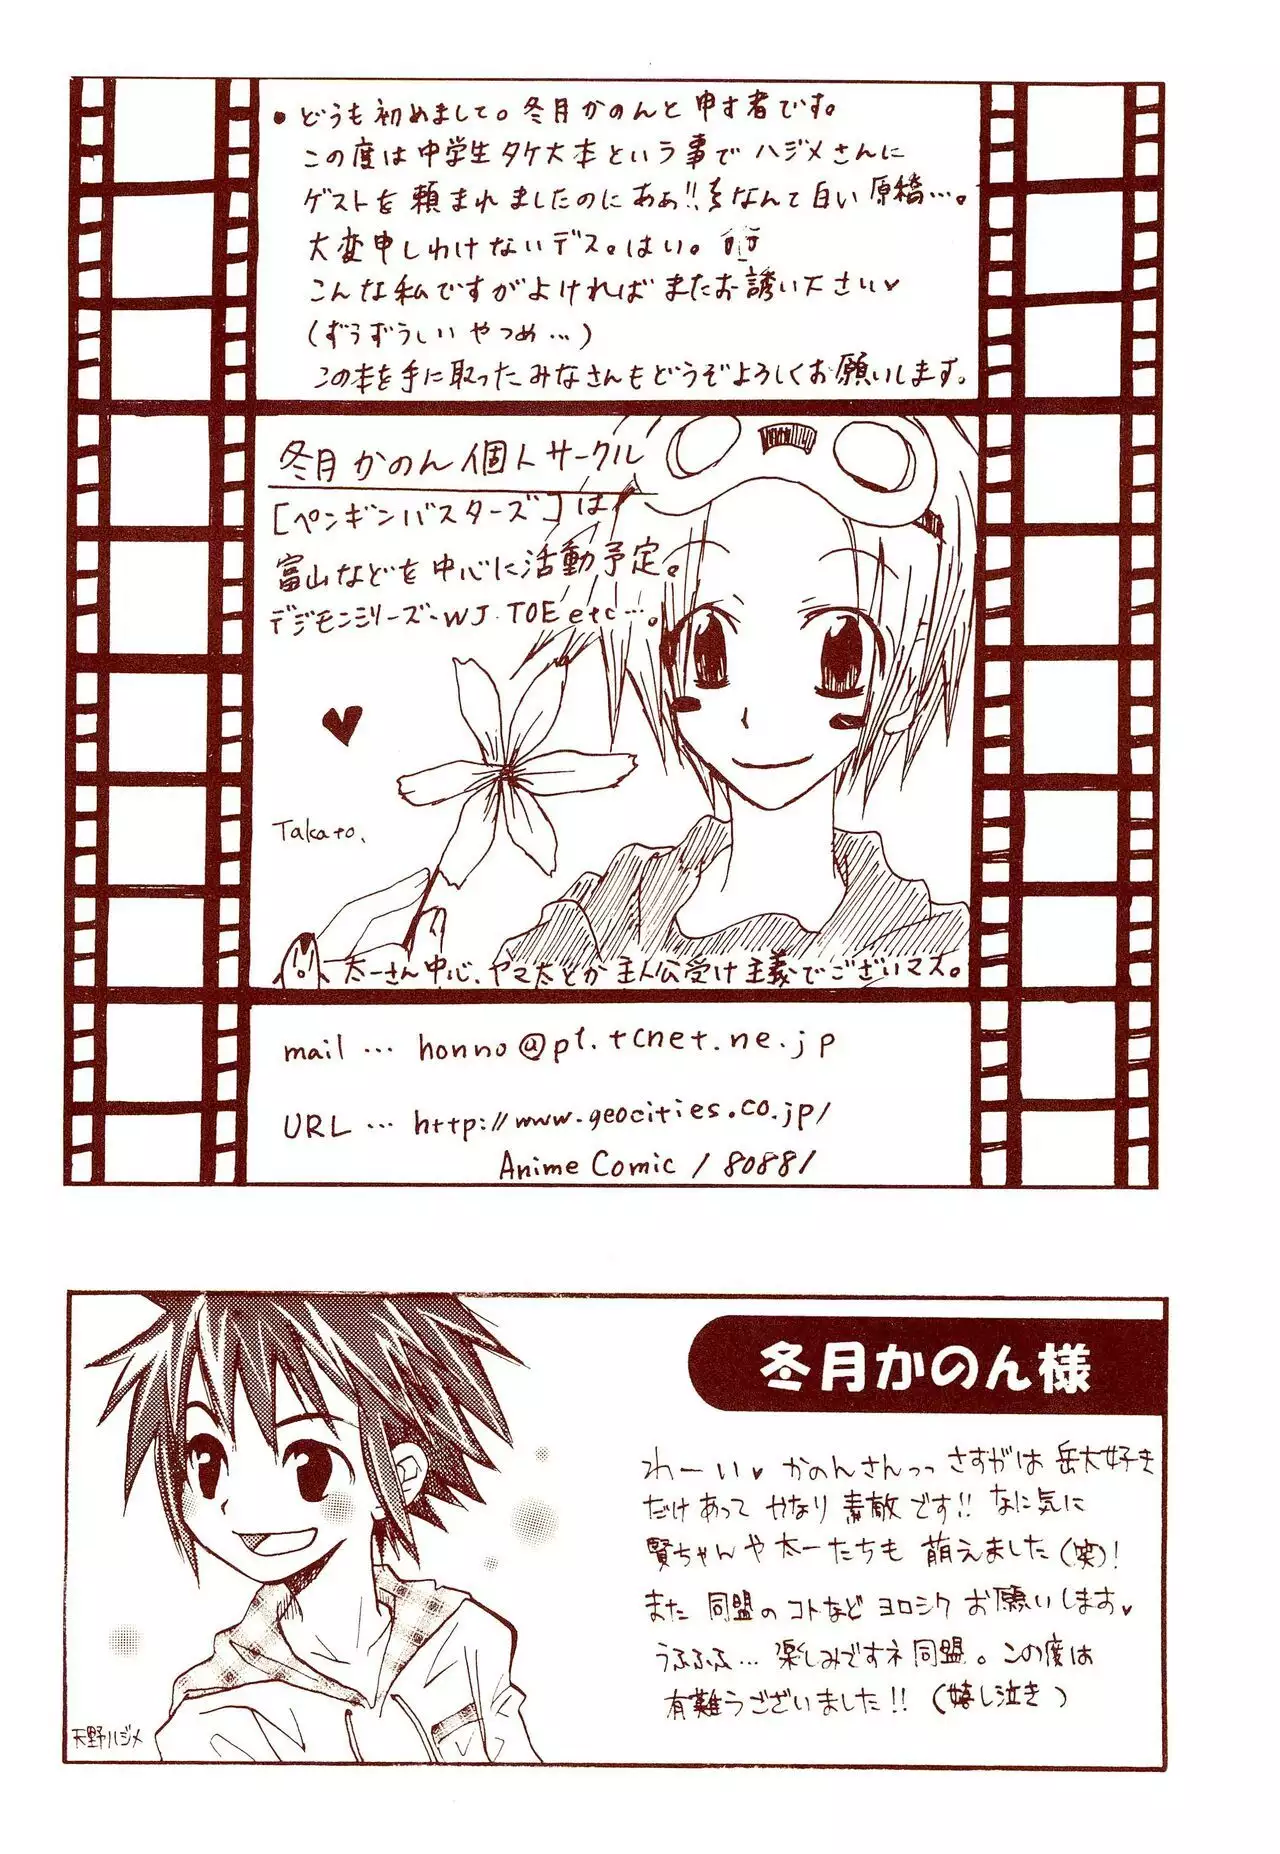 • どうも初めまして。冬月かのんと申す者です。
この度は中学生タケ大本という事でハジメさんに
ゲストを頼まれましたのにあぁ!!なんて白い原稿…。
大変申しわけないデス。はい。
こんな私ですがよければまたお誘い下さい♥
(ずうずうしいやつめ…)
この本を手に取ったみなさんもどうぞよろしくお願いします。
冬月かのん個人サークル
[ペンギンバスターズ]は
富山などを中心に活動予定。
デジモンシリーズ・WJ・TOE etc…。
Takato.
太一さん中心、ヤマ太とか主人公受け主義でございマス。
mail … honno@p1.tcnet.ne.jp
URL … http://www.geocities.co.jp/
AnimeComic/80881
冬月かのん様
わーい♥ かのんさんっっ さすがは岳大好き
だけあって やなり素敵です!! なに気に
賢ちゃんや太一たちも萌えました(笑)!
また同盟のコトなどヨロシクお願いします♥
うふふふ… 楽しみですネ同盟。この度は
有難うございました!! (嬉し泣き)
天野ハジメ